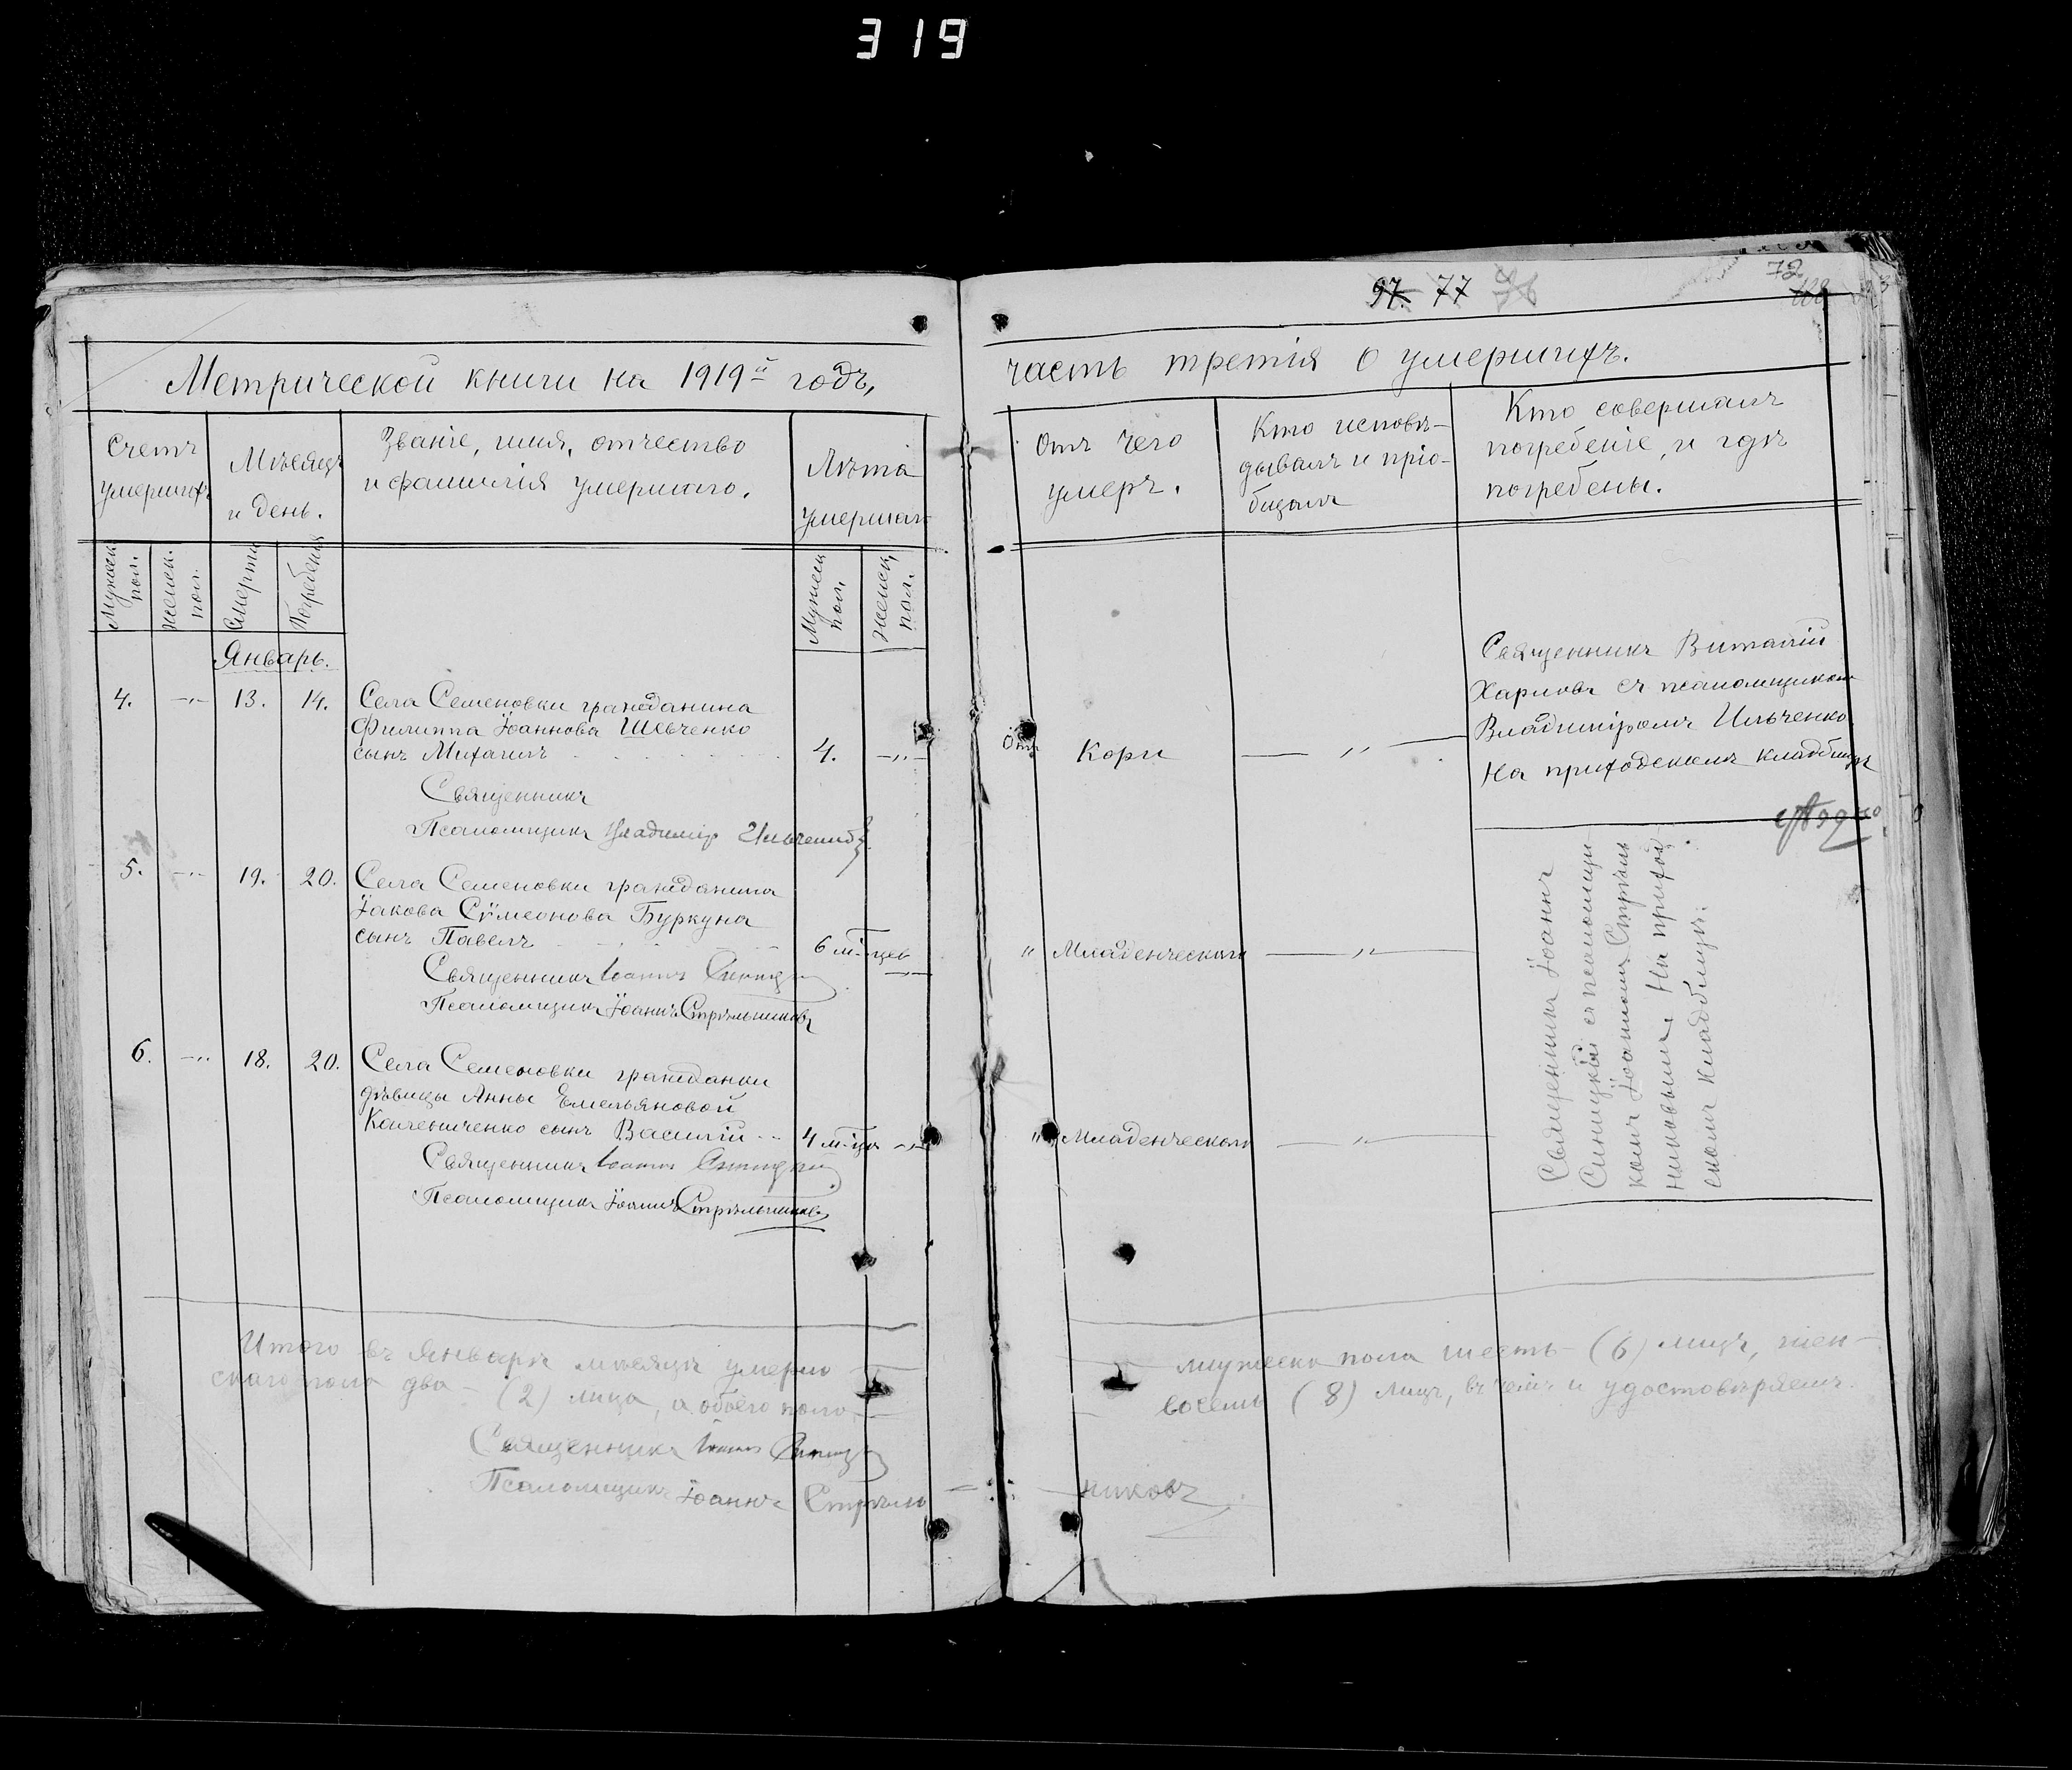 319
97. 77 96
72
Метрической книги на 1919й годъ,
часть третія о умершихъ.
Счетъ
умершихъ
Мѣсяцъ
и день.
Званіе, имя, отчество
и фамилія умершаго.
Лѣта
умершаго
Отъ чего
умеръ.
Кто исповѣ-
дывалъ и пріо-
бщалъ
Кто совершалъ
погребеніе, и гдѣ
погребены.
Мужеск.
пол.
женск.
пол.
Смерти
Погребенія
Мужеск
пол.
женск.
пол.
Январь.
4. -"- 13. 14. Села Семеновки гражданина
Филиппа Іоаннова Шевченко
сынъ Михаилъ 4. -"-
Отъ Кори — " —
Священникъ Виталій
Харловъ съ псаломщикомъ
Владиміромъ Ильченко
На приходскомъ кладбищѣ
Священникъ
Псаломщикъ Владимір Ильченко
5. -"- 19. 20. Села Семеновки гражданина
Іакова Сѵмеонова Буркуна
сынъ Павелъ 6 м-цев -"-
" Младенческаго — " —
Священникъ Іоаннъ Синицкій
Псаломщикъ Іоаннъ Стрѣльниковъ
6. -"- 18. 20. Села Семеновки гражданки
дѣвицы Анны Емельяновой
Калениченко сынъ Василій 4 м-ца -"-
" Младенческаго — " —
Священникъ Іоаннъ Синицкій
Псаломщикъ Іоаннъ Стрѣльниковъ
Священникъ Іоаннъ
Синицкій съ псаломщи
комъ Іоанномъ Стрѣль
никовымъ На приход
скомъ кладбищѣ.
Итого въ Январѣ мѣсяцѣ умерло — мужеска пола шесть (6) лицъ, жен-
скаго пола два – (2) лица, а обоего пола — восемь (8) лицъ, въ чемъ и удостовѣряемъ.
Священникъ Іоаннъ Синицкій
Псаломщикъ Іоаннъ Стрѣль — никовъ